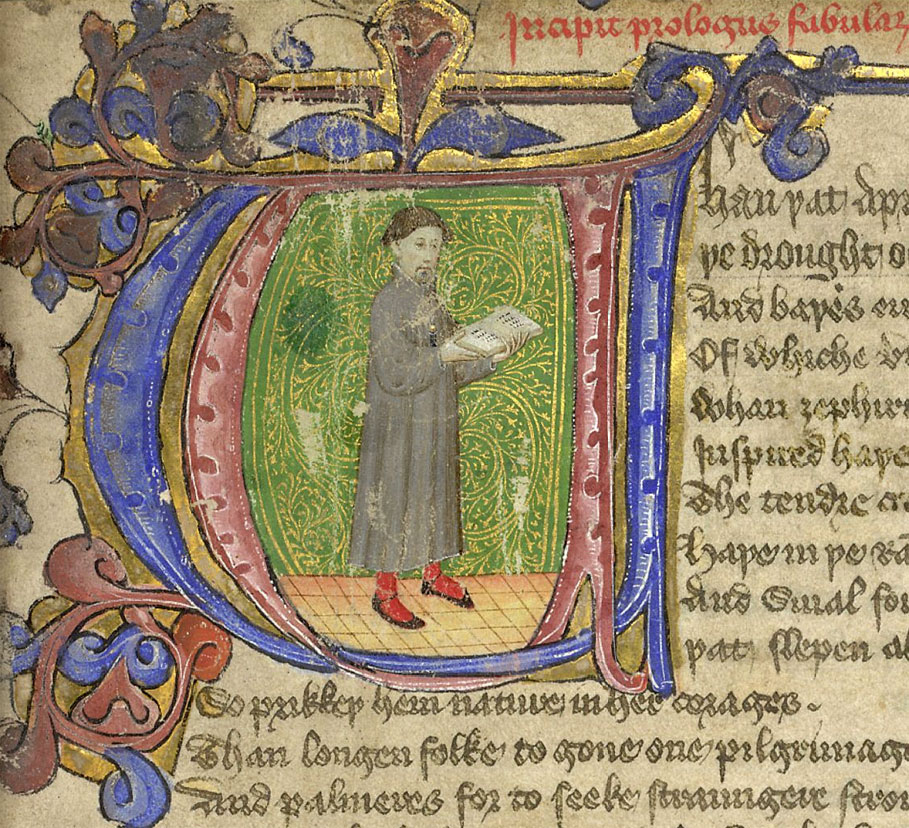 Incipit prologus fabular
Whan þat Apr
þe drought o
And baþes
Of whiche
Whan zephir
Inspired haþe
The tendre
haþe in þe Ra
And Smal fou
þat slepen al
So prikkeþ hem nature in her corages.
Than longen folke to gone one pilgrimage
And palmeres for to seeke straungere stron